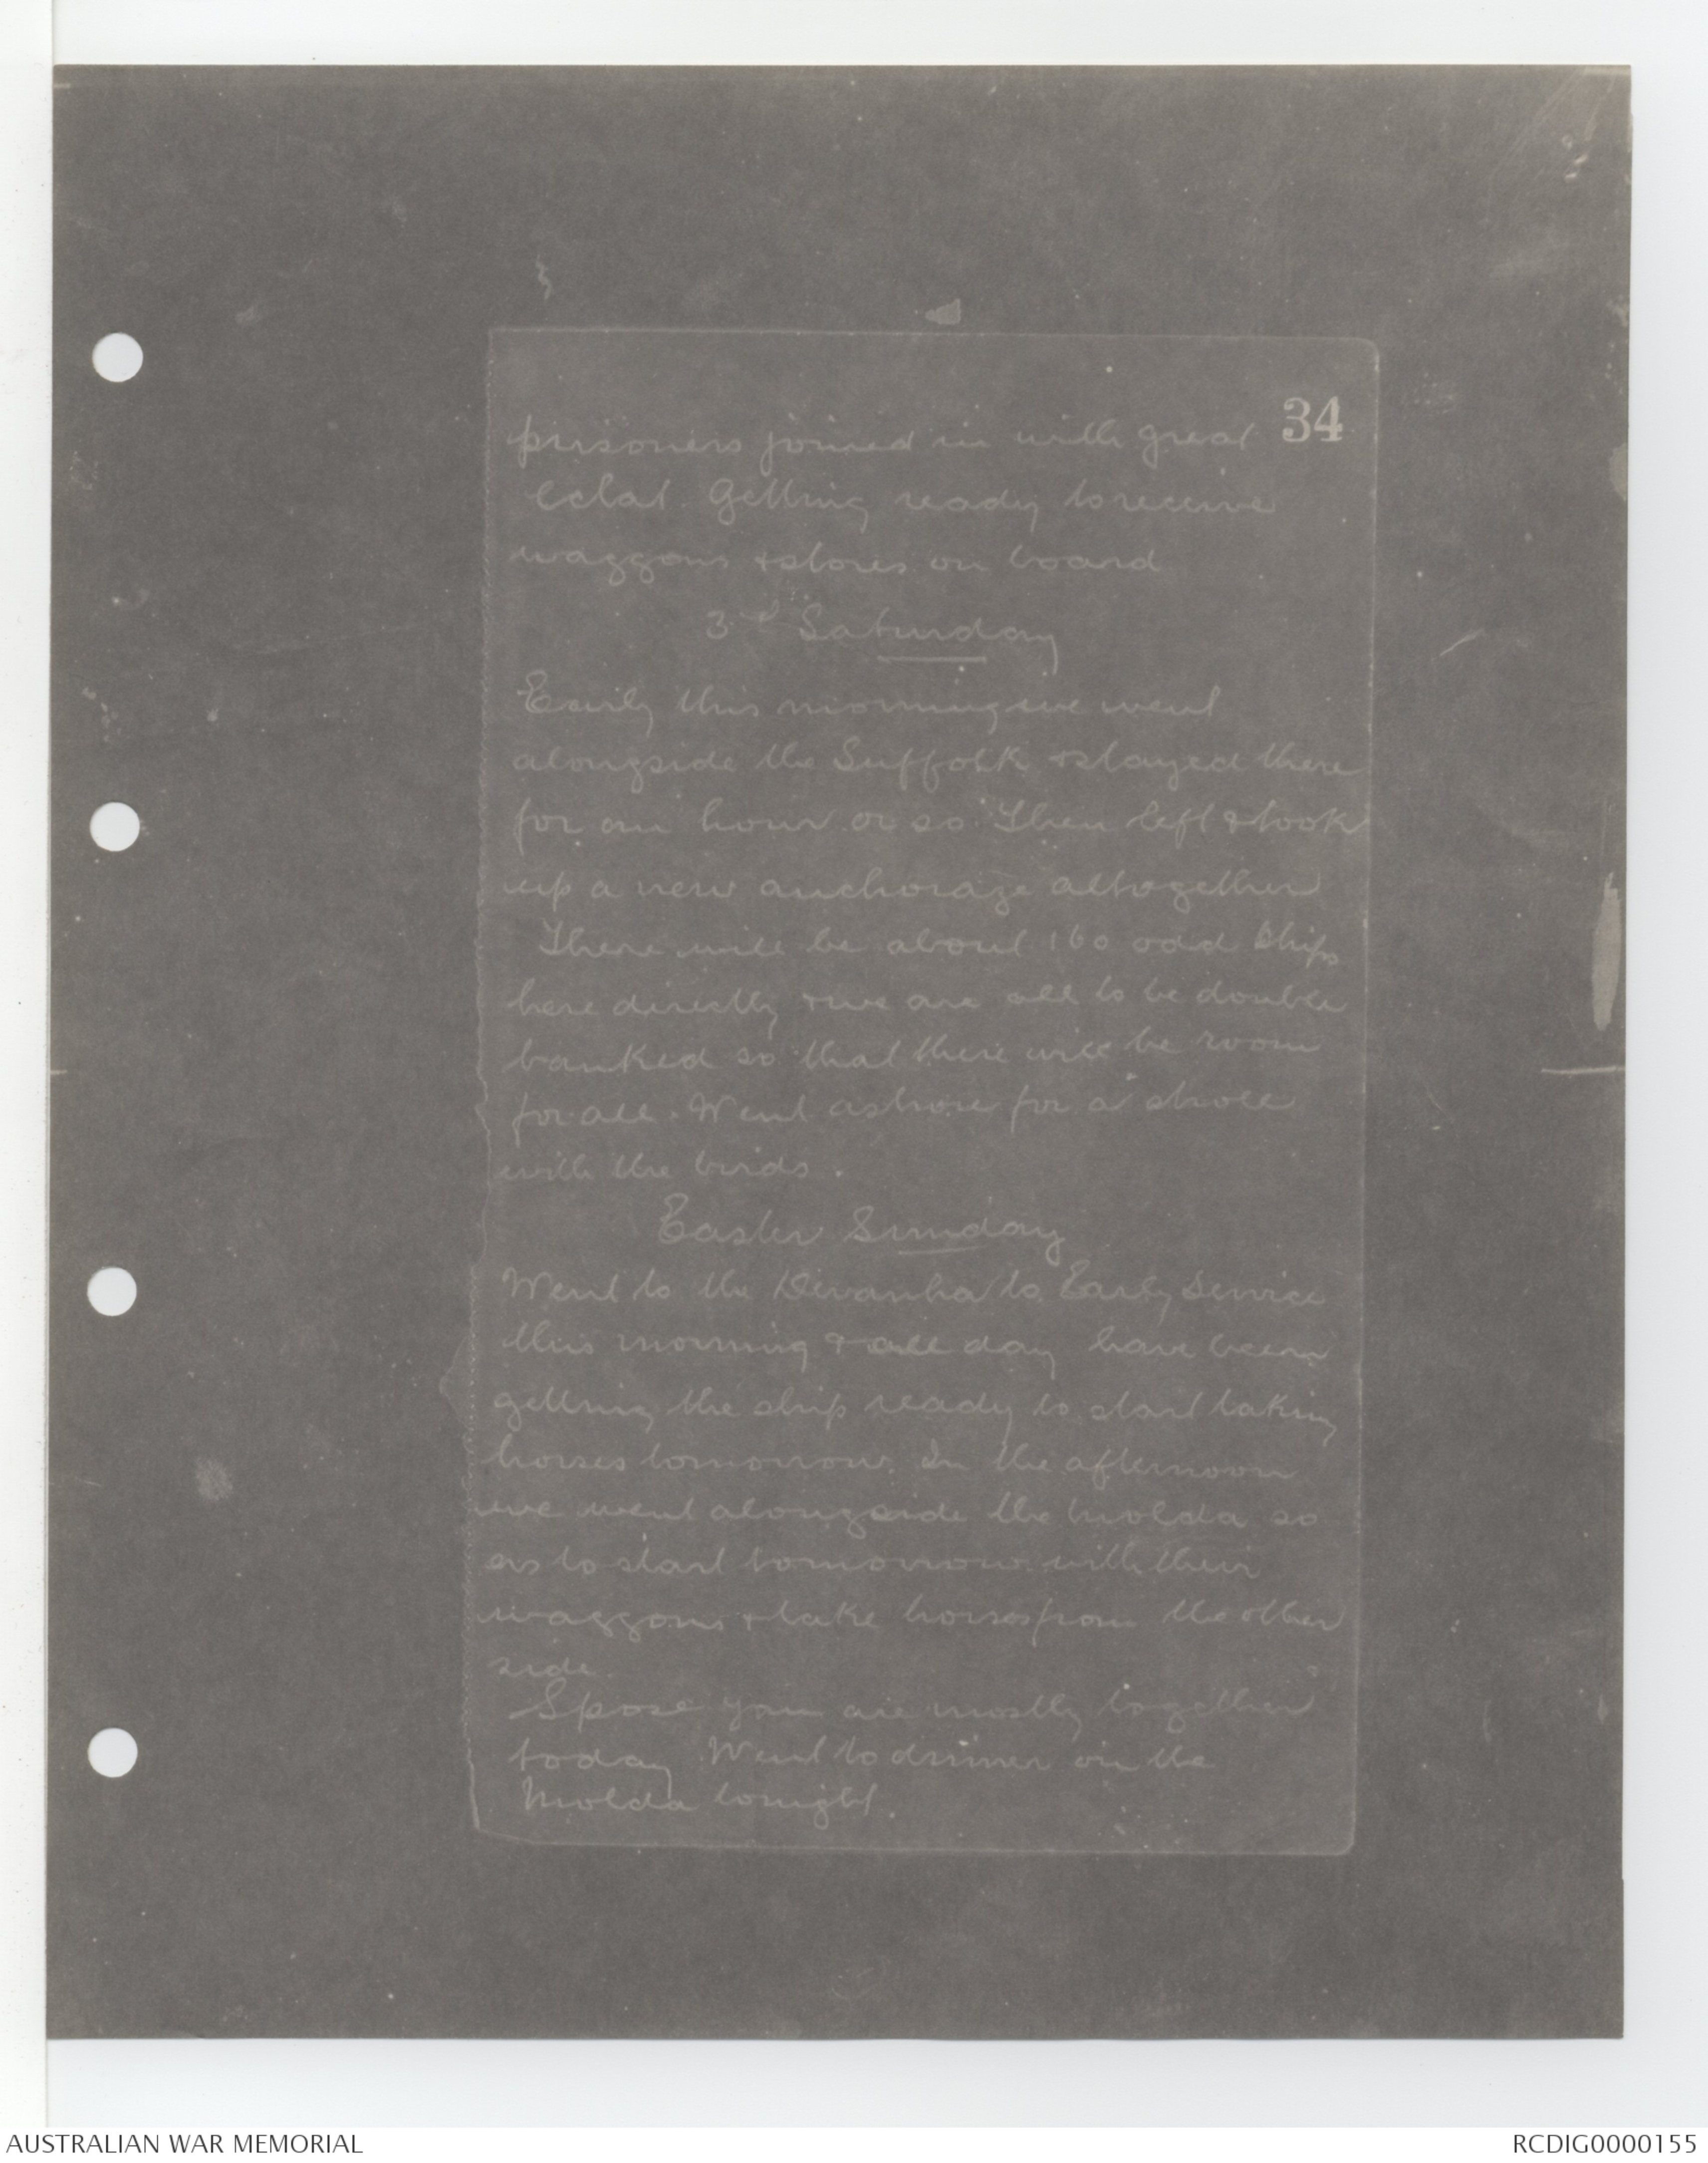 34
prisoners joined in with great
eclat. Getting ready to receive
waggons & stores on board
3rd Saturday
Early this morning we went
alongside the Suffolk & stayed there
for an hour or so. Then left & took
up a new anchorage altogether
There will be about 160 odd ships
here directly & we are all to be double
banked so that there will be room
for all. Went ashore for a stroll
with the birds.
Easter Sunday
Went to the Devanha to Early Service
this morning & all day have been
getting the ship ready to start taking
horses tomorrow. In the afternoon
we went alongside the Molda so
as to start tomorrow with their
waggons & take horses from the other
side.
Spose you are mostly together
today. Went to dinner on the
Molda tonight.
AUSTRALIAN WAR MEMORIAL
RCDIG0000155